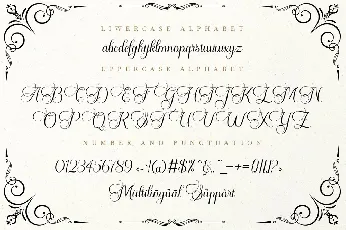 LOWERCASE ALPHABET
abcdefghijklmnopqrstuvwxyz
UPPERCASE ALPHABET
ABCDEFGHIJKLMN
OPQRSTUVWXYZ
NUMBER AND PUNCTUATION
0123456789 !@#$%
Multilingual Support